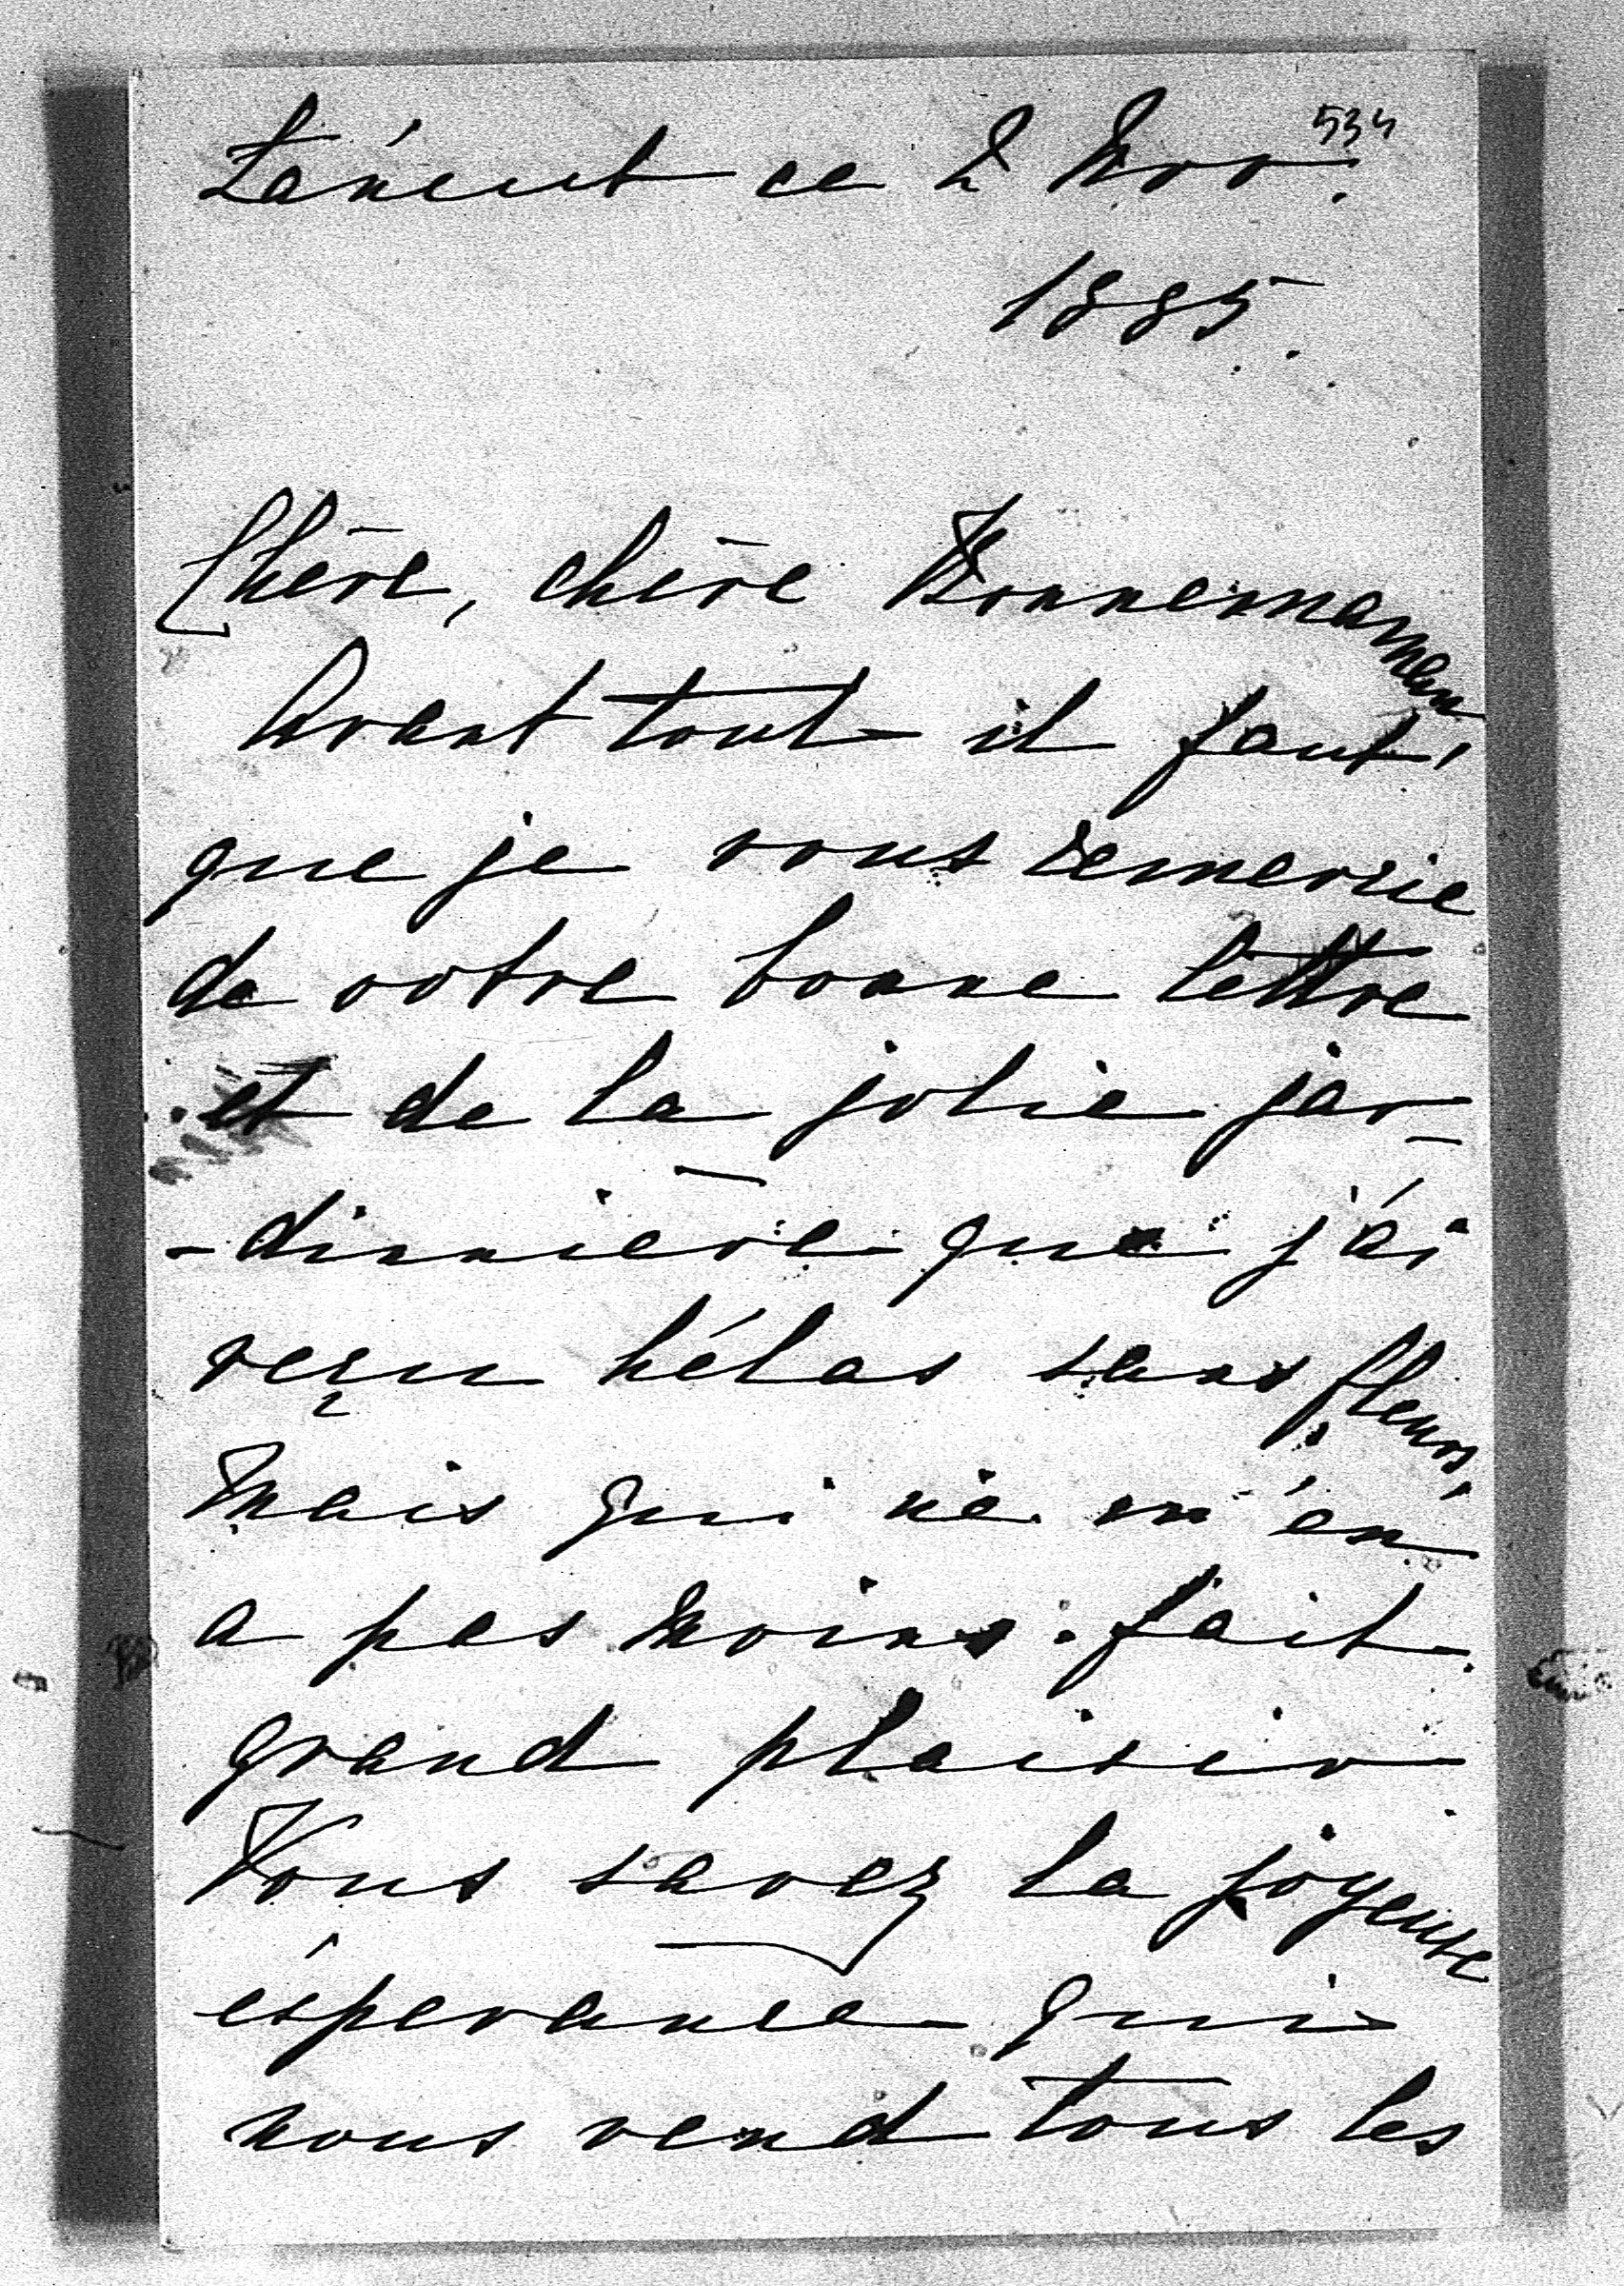 534
Lancut ce 2 Nov.
1885.
Chère, chère Bonnemaman
Avant tout il faut
que je vous remercie
de votre bonne lettre
et de la jolie jar-
-dinnière que j'ai
reçu hélas sans fleurs,
Mais qui ne m'en
a pas moins fait
grand plaisir
Vous savez la joyeuse
ésperance qui
nous rend tous les